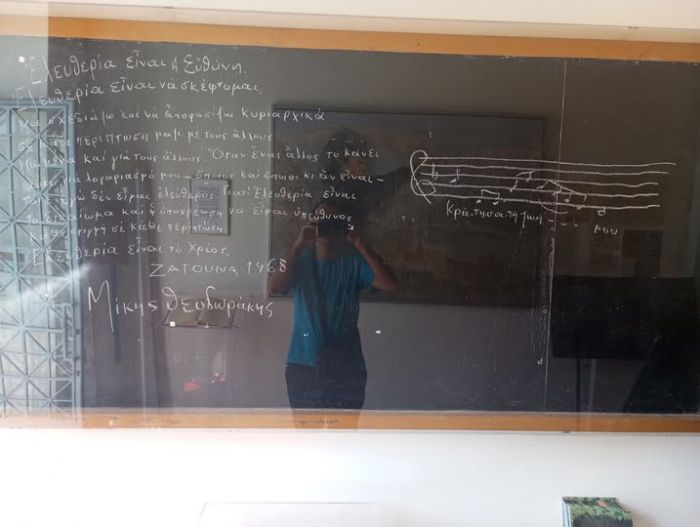 Ἐλευθερία εἶναι ἡ Εὐθύνη.
Ἐλευθερία εἶναι νὰ σκέφτομαι,
νὰ σχεδιάζω καὶ νὰ ἀποφασίζω κυριαρχικὰ
σὲ κάθε περίπτωση μαζὶ με τοὺς ἄλλους
καὶ γιὰ τοὺς ἄλλους. Ὅταν ἕνας ἄλλος τὸ κάνει
γιὰ λογαριασμό μου - ὅποιος καὶ ὅποιοι κι ἂν εἶναι -
τότε ἐγὼ δὲν εἶμαι ἐλεύθερος. Γιατὶ Ἐλευθερία εἶναι
τὸ δικαίωμα καὶ ἡ ὑποχρέωση νὰ εἶμαι ὑπεύθυνος
σὲ κάθε περίπτωση.
Ἐλευθερία εἶναι τὸ Χρέος.
ΖΑΤΟΥΝΑ 1968
Μίκης Θεοδωράκης
Κρά-τησα τὴ ζωή
μου